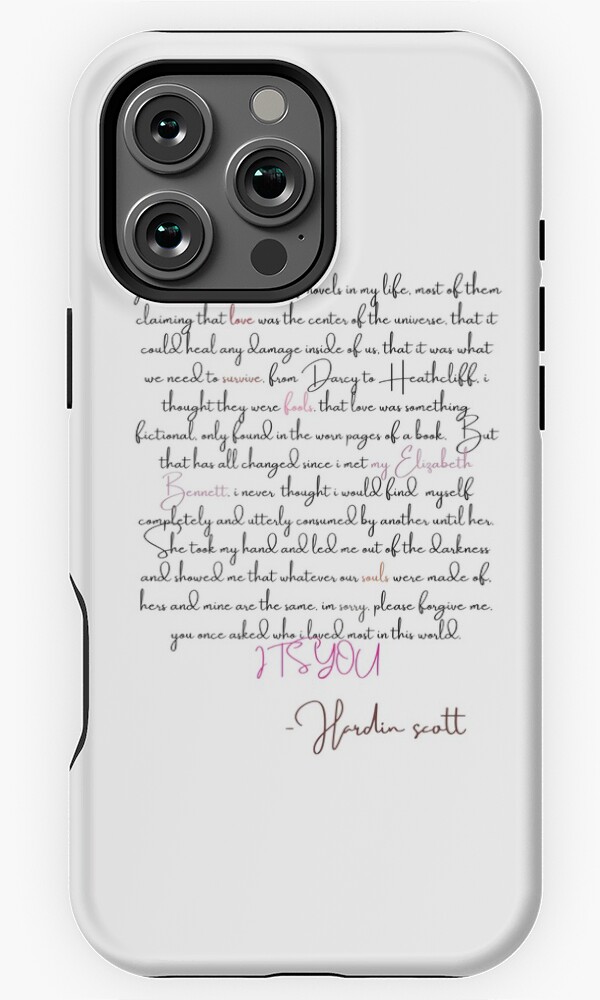 novels in my life, most of them
claiming that love was the center of the universe, that it
could heal any damage inside of us, that it was what
we need to survive. from Darcy to Heathcliff, i
thought they were fools. that love was something
fictional, only found in the worn pages of a book. But
that has all changed since i met my Elizabeth
Bennett. i never thought i would find myself
completely and utterly consumed by another until her.
She took my hand and led me out of the darkness
and showed me that whatever our souls were made of,
hers and mine are the same. im sorry, please forgive me.
you once asked who i loved most in this world.
ITS YOU
-Hardin scott